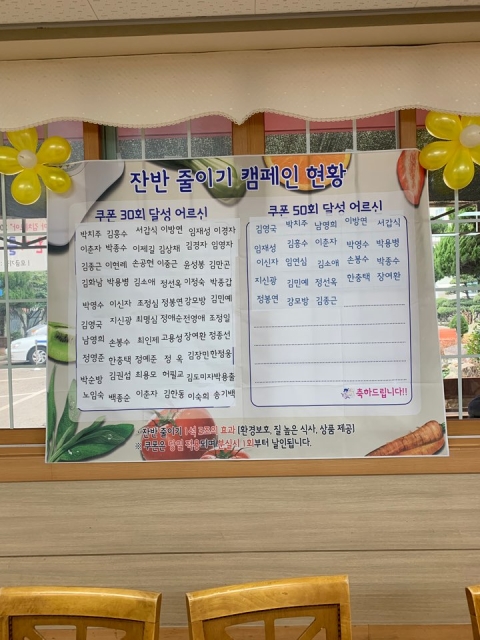 잔반 줄이기 캠페인 현황
쿠폰 30회 달성 어르신
박치주 김홍수 서갑식 이방연 임재성 이경자
이춘자 박종수 이제길 김상재 김경자 임영자
김종근 이현례 손공현 이충근 윤성봉 김만곤
김화남 박용병 김소애 정선옥 이정숙 박종갑
박영수 이신자 조정심 정봉연 강모방 김민예
김영국 지신광 최명심 정애순 전영애 조정일
남영희 손봉수 최인제 고용성 장여환 정종선
정영준 한충택 정예준 정 옥 김창민 한정용
박순방 김권섭 최용오 허필교 김도미자 박용출
노임숙 백종순 이춘자 김한동 이숙희 송기백
쿠폰 50회 달성 어르신
김영국 박치주 남영희 이방연 서갑식
임재성 김홍수 이춘자 박영수 박용병
이신자 임연심 김소애 손봉수 박종수
지신광 김민예 정선옥 한충택 장여환
정봉연 강모방 김종근
축하드립니다!!
잔반 줄이기 1석 3조의 효과 [환경보호, 질 높은 식사, 상품 제공]
※ 쿠폰은 당일 적용되며 분실시 1회부터 날인됩니다.